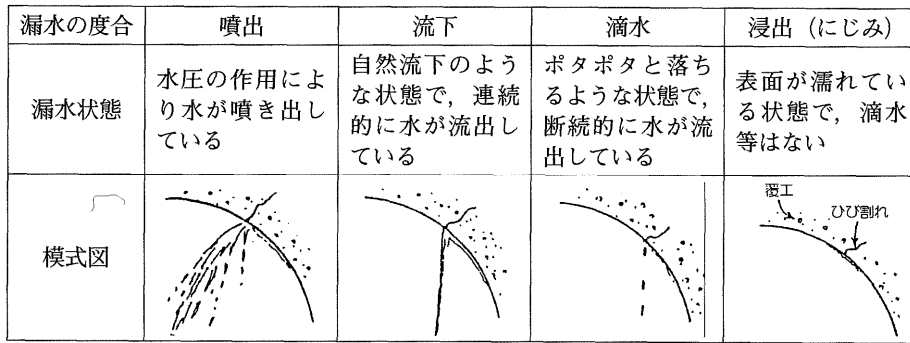 漏水の度合
噴出
流下
滴水
浸出（にじみ）
漏水状態
水圧の作用によ
り水が噴き出し
ている
自然流下のよう
な状態で，連続
的に水が流出し
ている
ポタポタと落ち
るような状態で，
断続的に水が流
出している
表面が濡れてい
る状態で，滴水
等はない
模式図
覆工
ひび割れ